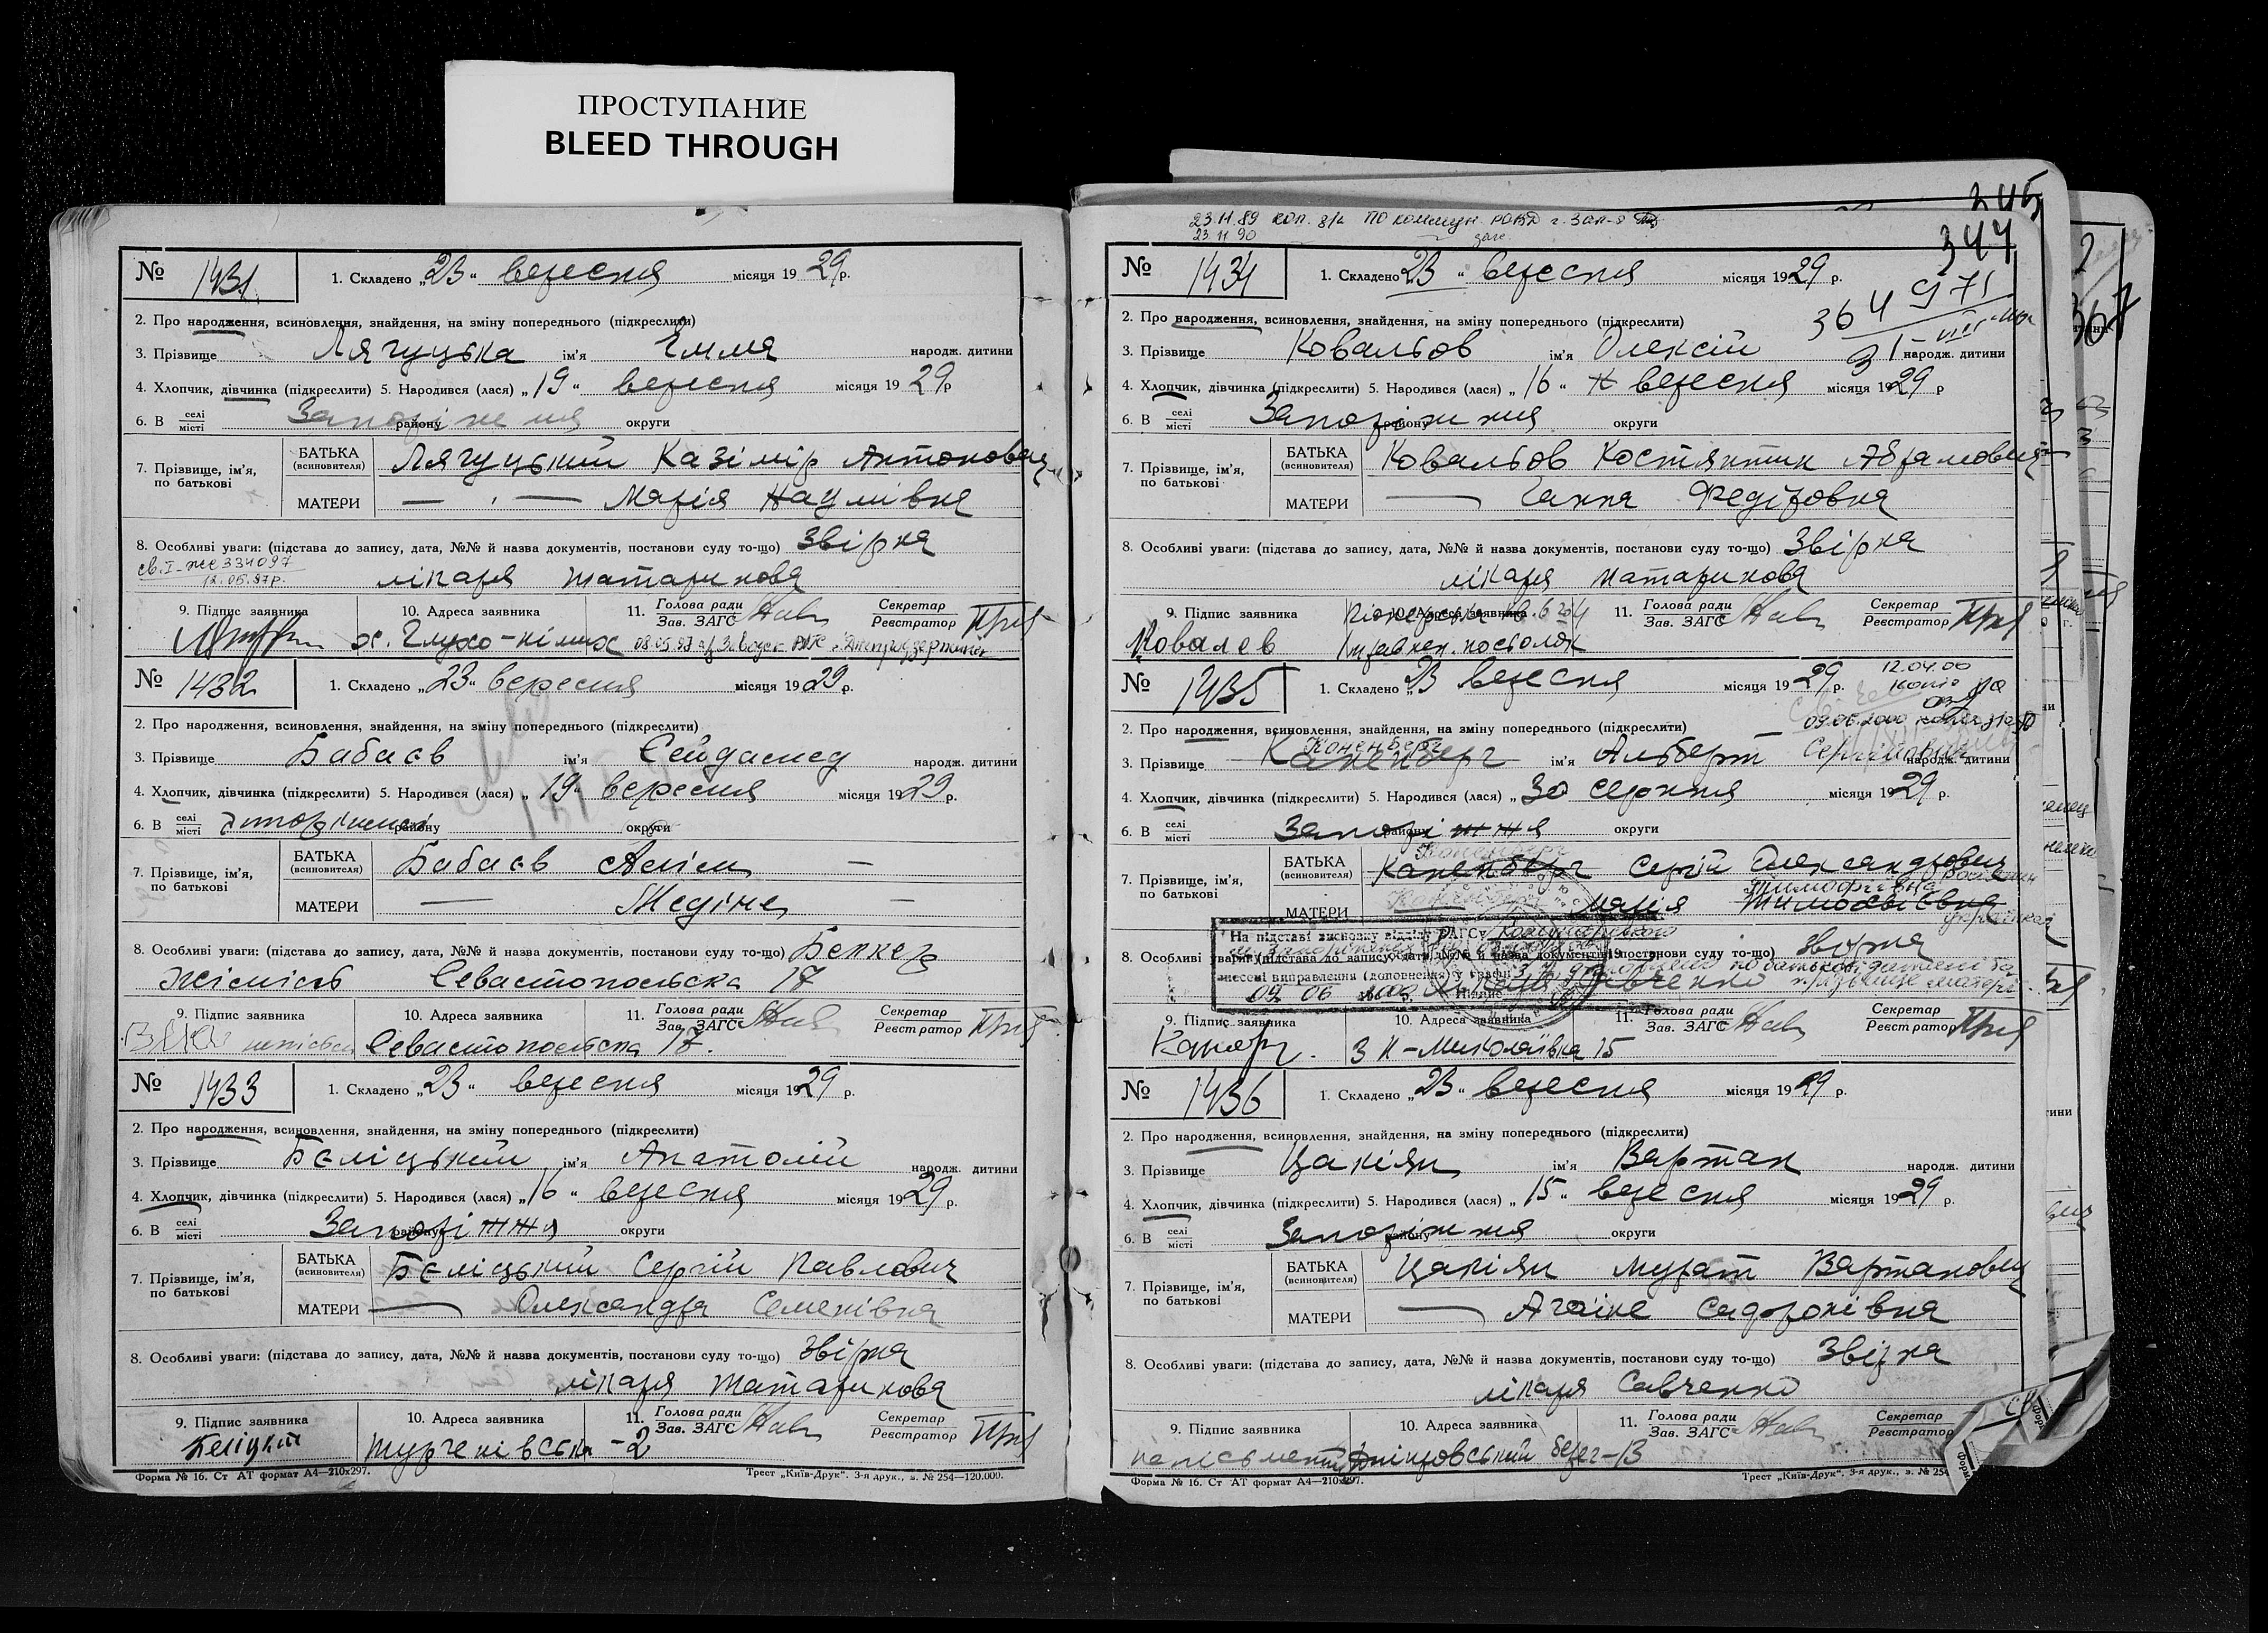 ПРОСТУПАНИЕ
BLEED THROUGH
№ 1431. 1. Складено „23“ вересня місяця 1929 р.
2. Про народження, всиновлення, знайдення, на зміну попереднього (підкреслити)
3. Прізвище Лягуцька ім'я Емма народж. дитини
4. Хлопчик, дівчинка (підкреслити) 5. Народився (лася) „19“ вересня місяця 1929 р
6. В селі місті Запоріжжя району округи
7. Прізвище, ім'я, по батькові
БАТЬКА (всиновителя) Лягуцький Казімір Антонович
МАТЕРИ — " — Марія Наумівна
8. Особливі уваги: (підстава до запису, дата, №№ й назва документів, постанови суду то-що) Звірка
св. I-же 334097
12.05.97р.
лікаря Татаринова
9. Підпис заявника 10. Адреса заявника 11. Голова ради Зав. ЗАГС Секретар Реєстратор
х. Глухо-німих 08.05.97
№ 1432 1. Складено „23“ вересня місяця 1929 р.
2. Про народження, всиновлення, знайдення, на зміну попереднього (підкреслити)
3. Прізвище Бабаєв ім'я Сейдамед народж. дитини
4. Хлопчик, дівчинка (підкреслити) 5. Народився (лася) „19“ вересня місяця 1929 р.
6. В селі місті Запоріжжя району округи
7. Прізвище, ім'я, по батькові
БАТЬКА (всиновителя) Бабаєв Алім —
МАТЕРИ — Медіне —
8. Особливі уваги: (підстава до запису, дата, №№ й назва документів, постанови суду то-що)
Севастопольська 17
9. Підпис заявника 10. Адреса заявника 11. Голова ради Зав. ЗАГС Секретар Реєстратор
Севастопольська 17.
№ 1433 1. Складено „23“ вересня місяця 1929 р.
2. Про народження, всиновлення, знайдення, на зміну попереднього (підкреслити)
3. Прізвище Бєліцький ім'я Анатолій народж. дитини
4. Хлопчик, дівчинка (підкреслити) 5. Народився (лася) „16“ вересня місяця 1929 р.
6. В селі місті Запоріжжя району округи
7. Прізвище, ім'я, по батькові
БАТЬКА (всиновителя) Бєліцький Сергій Павлович
МАТЕРИ — Олександра Семенівна
8. Особливі уваги: (підстава до запису, дата, №№ й назва документів, постанови суду то-що) Звірка
лікаря Татаринова
9. Підпис заявника 10. Адреса заявника 11. Голова ради Зав. ЗАГС Секретар Реєстратор
Беліцкий Тургенівська - 2
Форма № 16. Ст АТ формат А4—210x297. Трест „Київ-Друк“. 3-я друк., з. № 254—120.000.
345
23.11.89 коп. з/а
23.11.90
344
№ 1434 1. Складено „23“ вересня місяця 1929 р.
364 971
2. Про народження, всиновлення, знайдення, на зміну попереднього (підкреслити)
3. Прізвище Ковальов ім'я Олексій народж. дитини
4. Хлопчик, дівчинка (підкреслити) 5. Народився (лася) „16“ вересня місяця 1929 р
6. В селі місті Запоріжжя району округи
7. Прізвище, ім'я, по батькові
БАТЬКА (всиновителя) Ковальов Костянтин Абрамович
МАТЕРИ — Ганна Федорівна
8. Особливі уваги: (підстава до запису, дата, №№ й назва документів, постанови суду то-що) Звірка
лікаря Татаринова
9. Підпис заявника 10. Адреса заявника 11. Голова ради Зав. ЗАГС Секретар Реєстратор
Ковалев
№ 1435 1. Складено „23 вересня місяця 1929 р.
12.04.00
копія
09.06.2000
2. Про народження, всиновлення, знайдення, на зміну попереднього (підкреслити)
Коненберг
3. Прізвище Каненберг ім'я Альберт Сергійович народж. дитини
4. Хлопчик, дівчинка (підкреслити) 5. Народився (лася) „30 серпня місяця 1929 р.
6. В селі місті Запоріжжя району округи
7. Прізвище, ім'я, по батькові
Коненберг
БАТЬКА (всиновителя) Каненберг Сергій Олександрович
Тимофіївна
МАТЕРИ Марія
українка
На підставі висновку відділу РАГСу
8. Особливі уваги: (підстава до запису, дата, №№ й назва документів, постанови суду то-що) Звірка
внесені виправлення (доповнення) у графі 3, 7,
09 06 2000 Підпис
лікаря Савченко
9. Підпис заявника 10. Адреса заявника 11. Голова ради Зав. ЗАГС Секретар Реєстратор
З К-Миколаївка 15
№ 1436 1. Складено „23“ вересня місяця 1929 р.
2. Про народження, всиновлення, знайдення, на зміну попереднього (підкреслити)
3. Прізвище Цакіян ім'я Вартан народж. дитини
4. Хлопчик, дівчинка (підкреслити) 5. Народився (лася) „15“ вересня місяця 1929 р.
6. В селі місті Запоріжжя району округи
7. Прізвище, ім'я, по батькові
БАТЬКА (всиновителя) Цакіян Мурат Вартанович
МАТЕРИ — Сидоронівна
8. Особливі уваги: (підстава до запису, дата, №№ й назва документів, постанови суду то-що) Звірка
лікаря Савченко
9. Підпис заявника 10. Адреса заявника 11. Голова ради Зав. ЗАГС Секретар Реєстратор
Дніпровський берег-13
Форма № 16. Ст АТ формат А4—210x297. Трест „Київ-Друк“. 3-я друк., з. № 254